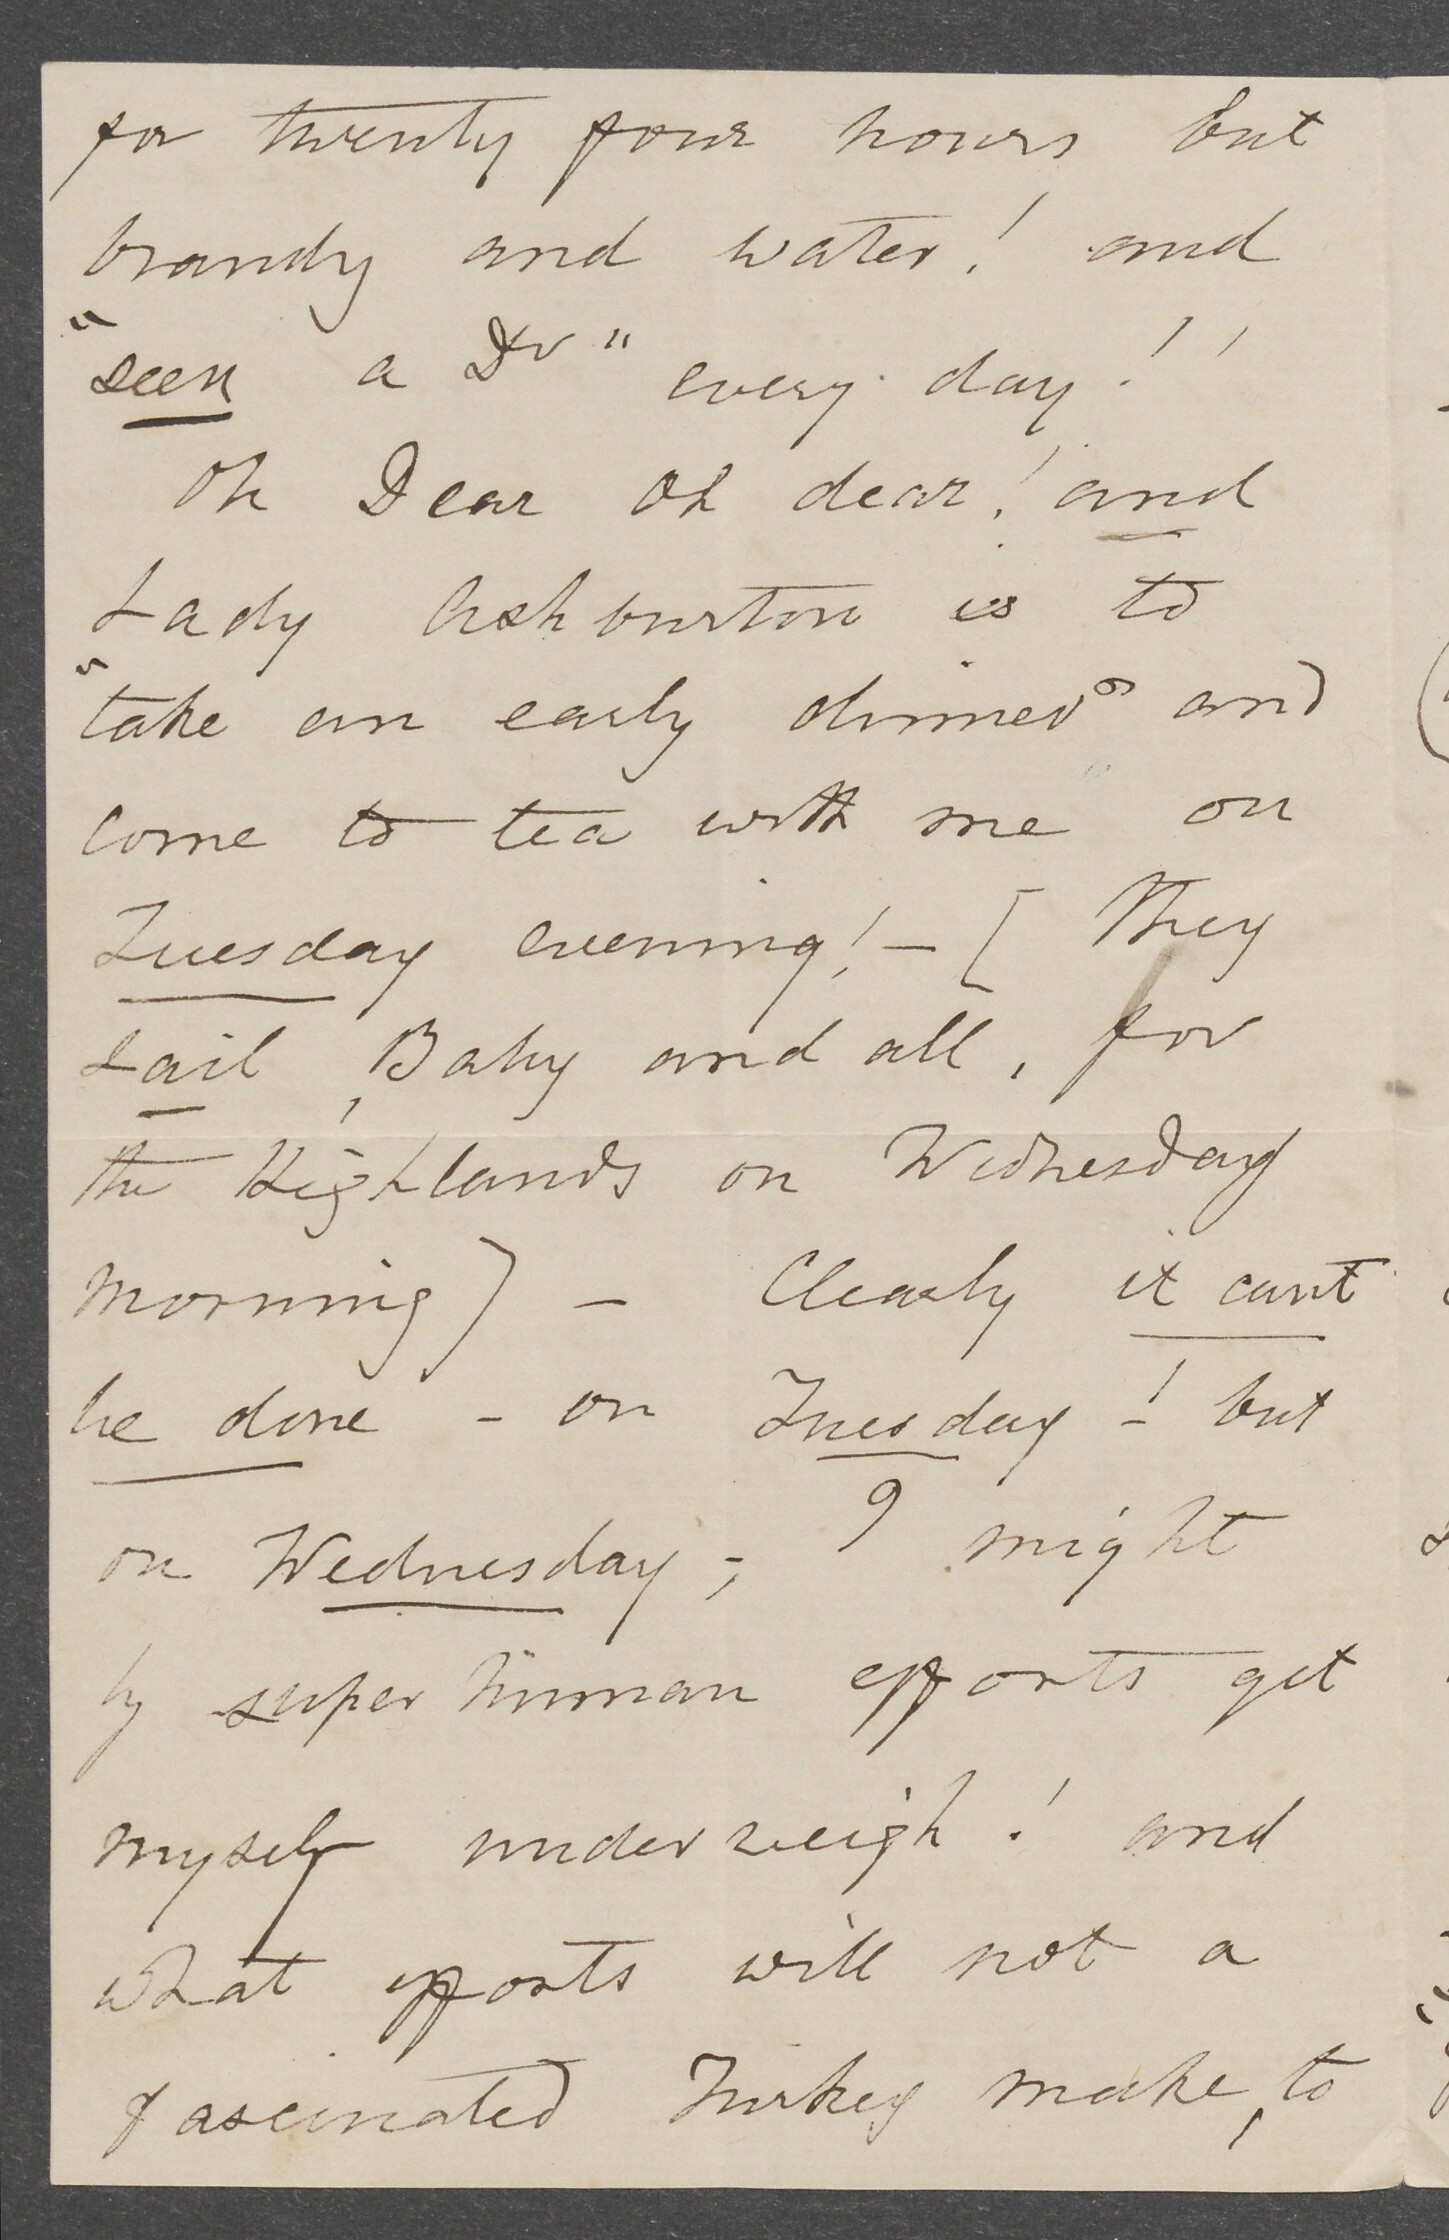 for twenty four hours but
brandy and water! and
"seen a Dr" every day!!
Oh Dear oh dear! and
Lady Ashburton is to
"take an early dinner" and
come to tea with me on
Tuesday evening! – [They
sail, Baby and all, for
the Highlands on Wednesday
morning) – Clearly it cant
be done – on Tuesday –! but
on Wednesday –; I might
by super human efforts get
myself underweigh! and
what efforts will not a
fascinated Turkey make, to